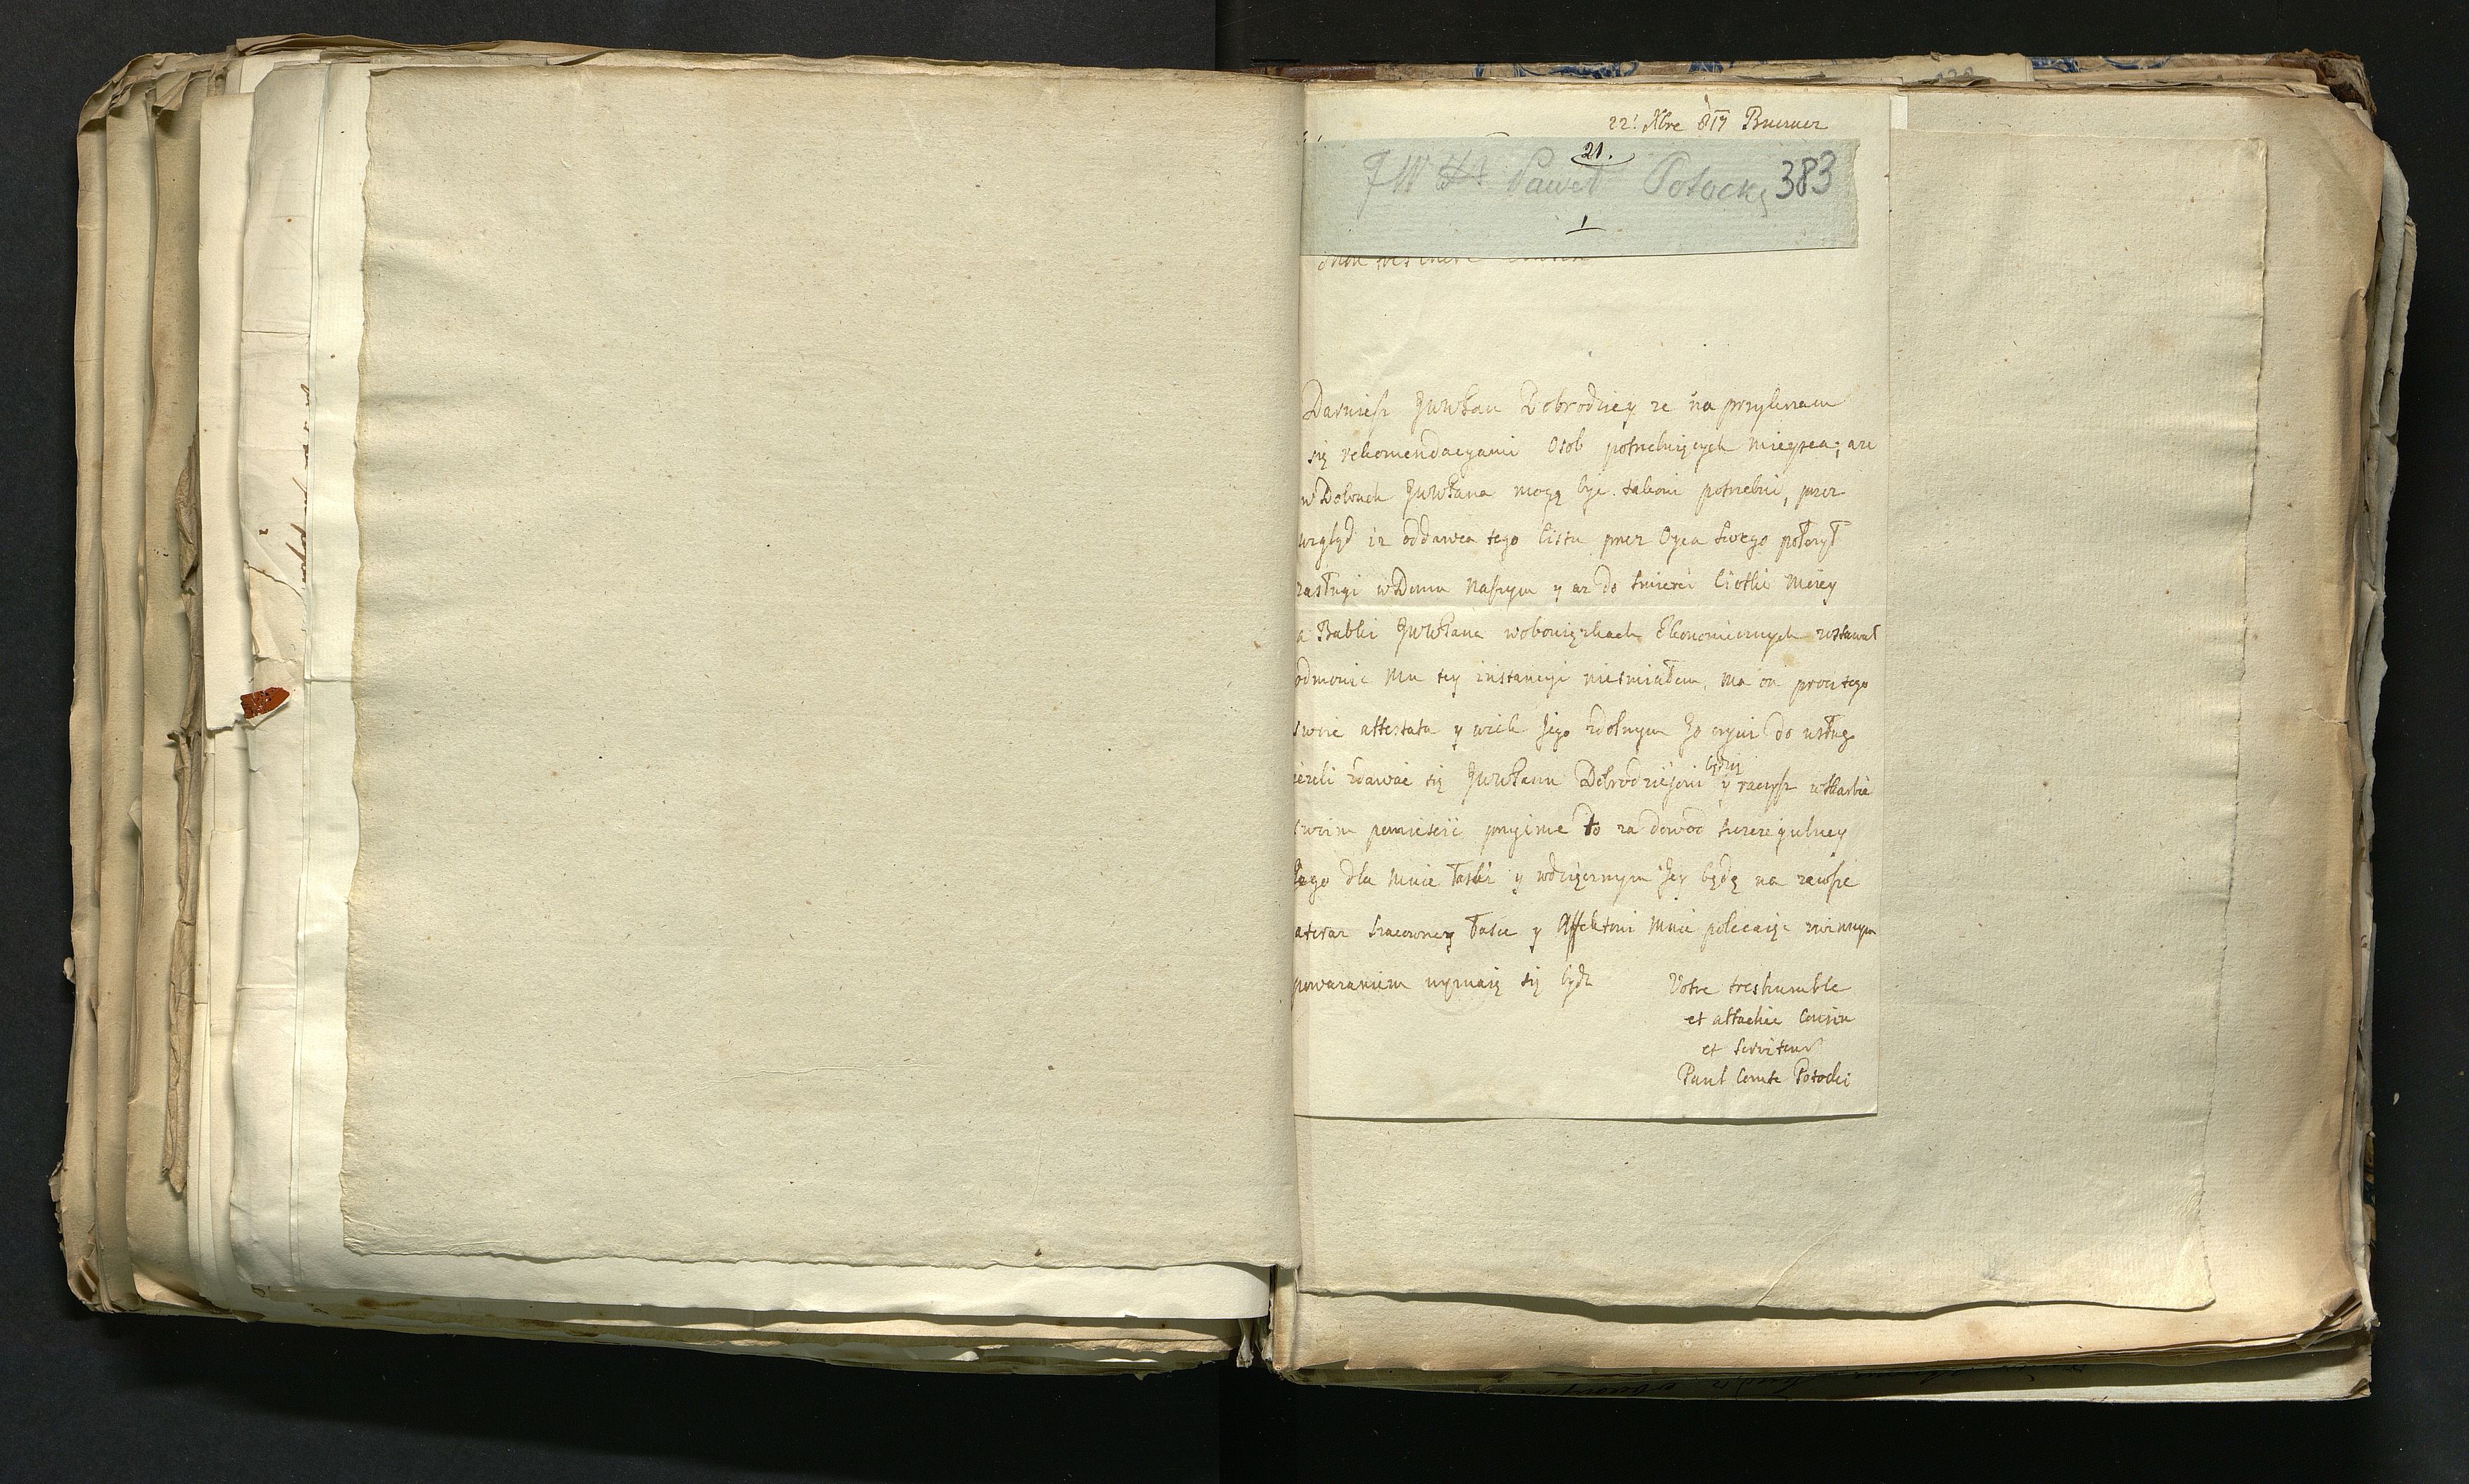 22! Xbre 817 Buczacz
21.
JW Hr Paweł Potocki 383
1
Mon tres chere Cousin
Darujesz JWWPan Dobrodziey ze na przykrzam
się rekomendacyami Osob potrzebuiących mieysca, ale
w Dobrach JWWPana mogą byc takowi potrzebni, przez
wzgląd iz oddawca tego listu przez Oyca swego położył
zasługi w Domu Naszym y az do smierci Ciotki moiey
a Babki JWWPana w obowiązkach Ekonomicznych zostawał
odmowic mu tey instancyi niesmiałem, ma on procz tego
swoie attestata y wiek Jego zdolnym Go czyni do usług
iezeli zdawać się JWWPanu Dobrodziejowi będzie y raczysz w Skarbie
swoim pomieścić przyime to za dowod szczezegulney
Jego dla mnie łaski y wdzięcznym Jey będę na zawsze
a teraz szacowney łasce y Affektowi mnie polecaiąc z winnym
powazaniem wyznaię się bydz
Votre treshumble
et attachée Cousin
et Serviteur
Paul Comte Potocki